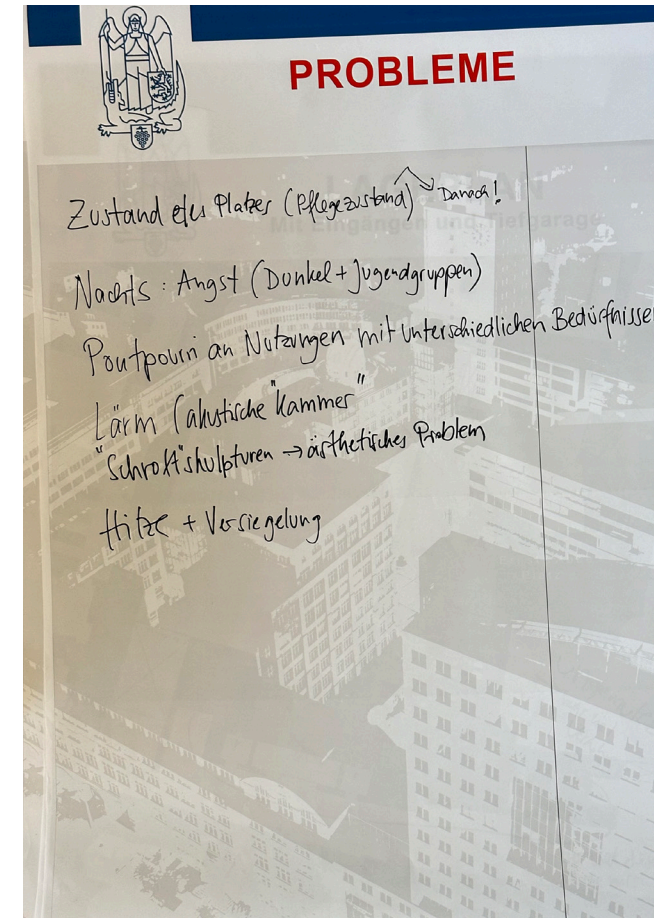 PROBLEME
Zustand des Platzes (Pflegezustand) Danach!
LAGEPLAN
Mit Eingängen und Tiefgarage
Nachts: Angst (Dunkel + Jugendgruppen)
Poutpourri an Nutzungen mit unterschiedlichen Bedürfnisse
Lärm (akustische "Kammer"
"Schrott"skulpturen → ästhetisches Problem
Hitze + Versiegelung